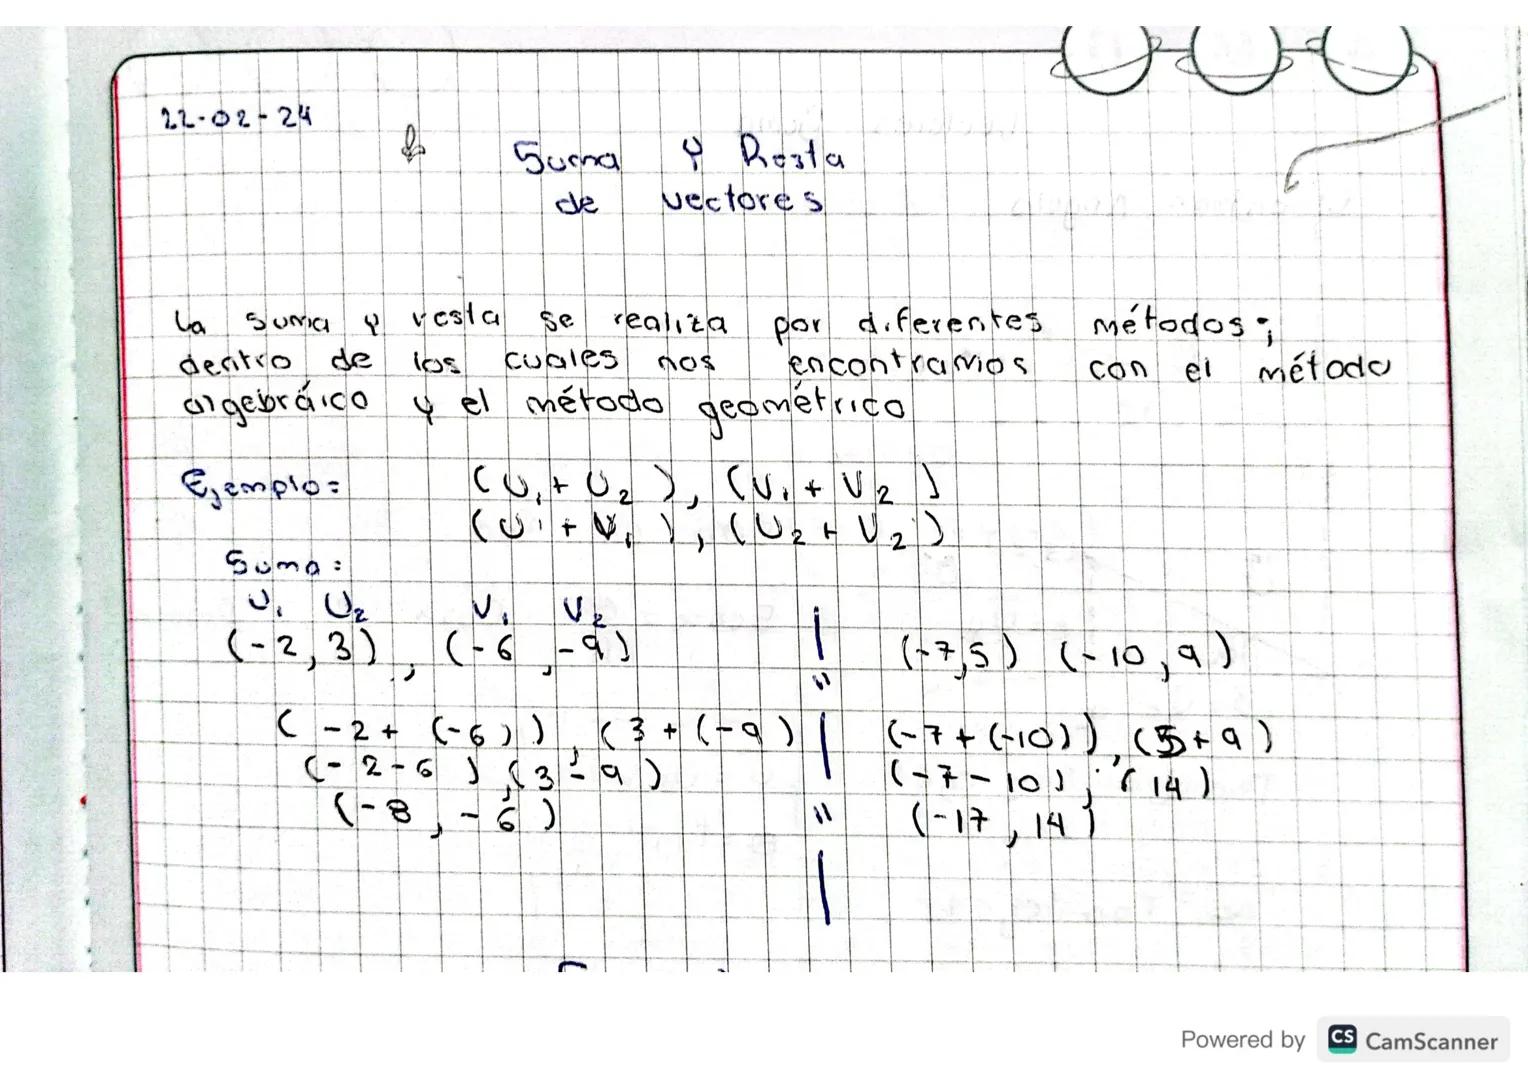 22-02-24
Suma y Resta
de vectores
La suma y resta se realiza por diferentes métodos;
dentro de los cuales nos encontramos con el método
algebráico y el método geométrico
Ejemplo: (U₁ + U₂), (V₁ + V₂)
(U₁ + V₁), (U₂ + V₂)
Suma:
U₁ U₂ V₁ V₂
(-2, 3), (-6, -9)
(-7,5) (-10, 9)
(-2 + (-6)), (3 + (-9)
(-2-6), (3-9)
(-8, -6)
(-7+(-10)), (5+9)
(-7-10), (14)
(-17, 14)
Powered by CS CamScanner